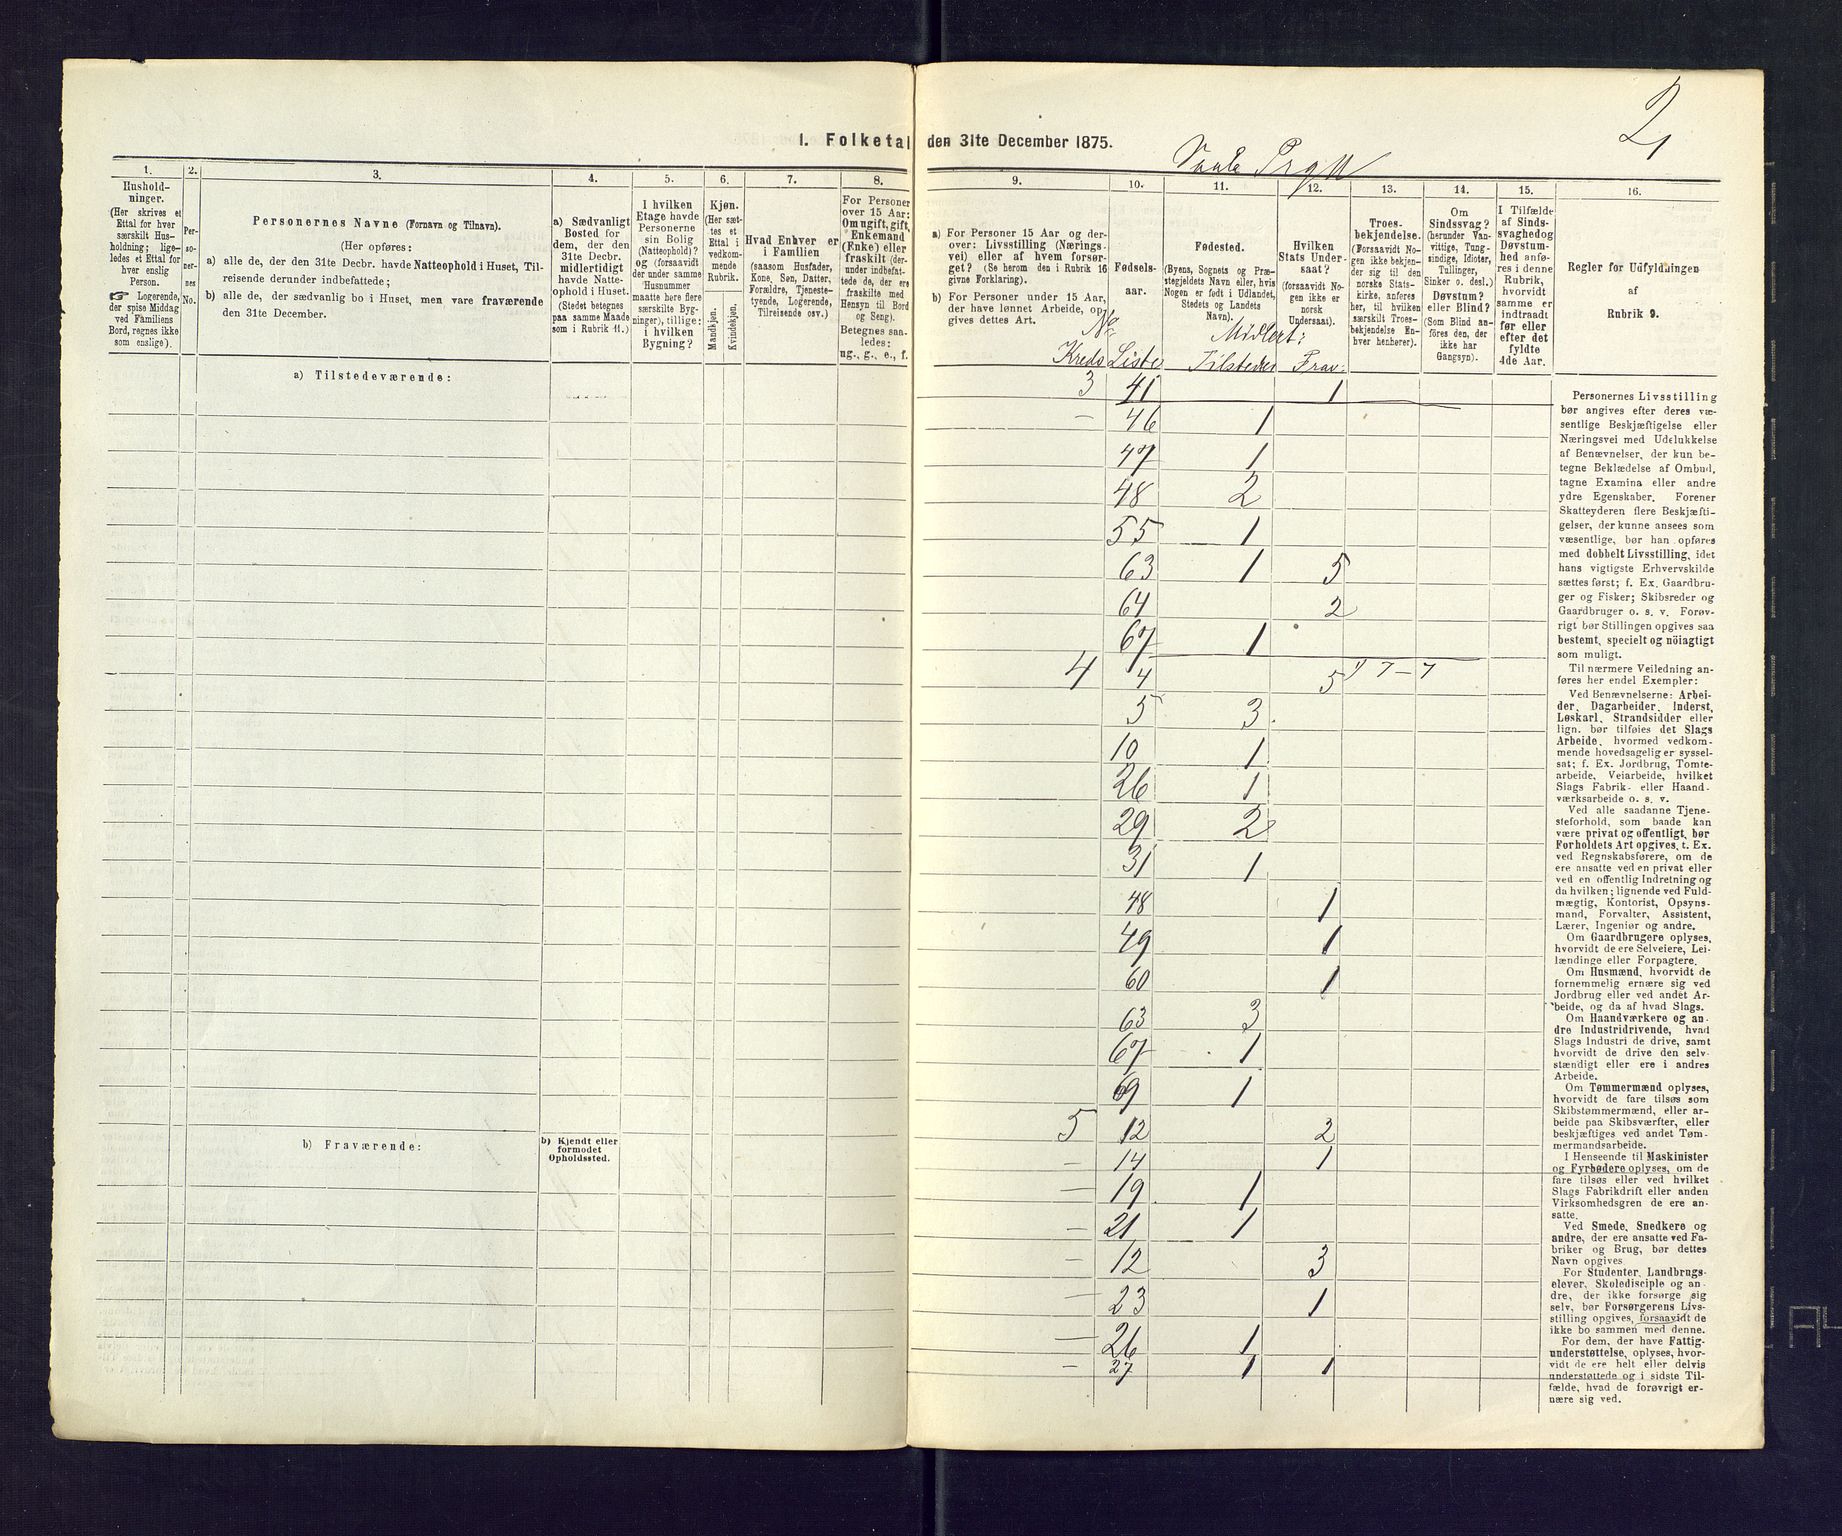 2
1. Folketal den 31te December 1875.
1.
Hushold-
ninger.
(Her skrives et
Ettal for hver
særskilt Hus-
holdning; lige-
ledes et Ettal for
hver enslig
Person.
☞ Logerende,
der spise Middag
ved Familiens
Bord, regnes ikke
som enslige).
2.
Per-
so-
ner-
nes
No.
3.
Personernes Navne (Fornavn og Tilnavn).
(Her opføres:
a) alle de, der den 31te Decbr. havde Natteophold i Huset, Til-
reisende derunder indbefattede;
b) alle de, der sædvanlig bo i Huset, men vare fraværende
den 31te December.
4.
a) Sædvanligt
Bosted for
dem, der den
31te Decbr.
midlertidigt
havde Natte-
ophold i Huset.
(Stedet betegnes
paa samme Maade
som i Rubrik 11.)
5.
I hvilken
Etage havde
Personerne
sin Bolig
(Natteophold)?
og (forsaavidt
der under samme
Husnummer
maatte høre flere
særskilte Byg-
ninger), tillige:
i hvilken
Bygning?
6.
Kjøn.
(Her sæt-
tes et
Ettal i
vedkom-
mende
Rubrik.
Mandkjøn.
Kvindekjøn.
7.
Hvad Enhver er
i Familien
(saasom Husfader,
Kone, Søn, Datter,
Forældre, Tjeneste-
tyende, Logerende,
Tilreisende osv.)
8.
For Personer
over 15 Aar:
Om ugift, gift,
Enkemand
(Enke) eller
fraskilt (der-
under indbefat-
tede de, der ere
fraskilte med
Hensyn til Bord
og Seng).
Betegnes saa-
ledes:
ug., g., e., f.
9.
a) For Personer 15 Aar og der-
over: Livsstilling (Nærings-
vei) eller af hvem forsør-
get? (Se herom den i Rubrik 16
givne Forklaring).
b) For Personer under 15 Aar,
der have lønnet Arbeide, op-
gives dettes Art.
10.
Fødsels-
aar.
11.
Fødested.
(Byens, Sognets og Præ-
stegjeldets Navn eller, hvis
Nogen er født i Udlandet,
Stedets og Landets
Navn).
12.
Hvilken
Stats Under-
saat?
(forsaavidt No-
gen ikke er
norsk
Undersaat).
13.
Troes-
bekjendelse.
(Forsaavidt No-
gen ikke bekjen-
der sig til den
norske Stats-
kirke, anføres
her, til hvilken
særskilt Troes-
bekjendelse En-
hver henhører).
14.
Om
Sindssvag?
(herunder Van-
vittige, Tung-
sindige, Idioter,
Tullinger,
Sinker o. desl.)
Døvstum?
eller Blind?
(Som Blind an-
føres den, der
ikke har
Gangsyn).
15.
I Tilfælde
af Sinds-
svaghed og
Døvstum-
hed anfø-
res i denne
Rubrik,
hvorvidt
samme er
indtraadt
før eller
efter det
fyldte
4de Aar.
16.
Regler for Udfyldningen
af
Rubrik 9.
No.
Midlert:
Kreds Liste Tilstedev Frav:
a) Tilstedeværende:
3 41 1
— 46 1
47 1
48 2
55 1
63 1 5
64 2
67 1
4 4 5
5 3
10 1
26 1
29 2
31 1
48 1
49 1
60 1
63 3
67 1
69 1
5 12 2
— 14 1
— 19 1
— 21 1
— 12 3
— 23 1
— 26 1
— 27 1 1
b) Fraværende:
b) Kjendt eller
formodet
Opholdssted.
Personernes Livsstilling
bør angives efter deres væ-
sentlige Beskjæftigelse eller
Næringsvei med Udelukkelse
af Benævnelser, der kun be-
tegne Beklædelse af Ombud,
tagne Examina eller andre
ydre Egenskaber. Forener
Skatteyderen flere Beskjæfti-
gelser, der kunne ansees som
væsentlige, bør han opføres
med dobbelt Livsstilling, idet
hans vigtigste Erhvervskilde
sættes først; f. Ex. Gaardbru-
ger og Fisker; Skibsreder og
Gaardbruger o. s. v. Forøv-
rigt bør Stillingen opgives saa
bestemt, specielt og nöiagtigt
som muligt.
Til nærmere Veiledning an-
føres her endel Exempler:
Ved Benævnelserne: Arbei-
der, Dagarbeider, Inderst,
Løskarl, Strandsidder eller
lign. bør tilføies det Slags
Arbeide, hvormed vedkom-
mende hovedsagelig er syssel-
sat; f. Ex. Jordbrug, Tomte-
arbeide, Veiarbeide, hvilket
Slags Fabrik- eller Haand-
værksarbeide o. s. v.
Ved alle saadanne Tjene-
steforhold, som baade kan
være privat og offentligt, bør
Forholdets Art opgives, t. Ex.
ved Regnskabsførere, om de
ere ansatte ved en privat eller
ved en offentlig Indretning og
da hvilken; lignende ved Fuld-
mægtig, Kontorist, Opsyns-
mand, Forvalter, Assistent,
Lærer, Ingeniør og andre.
Om Gaardbrugere oplyses,
hvorvidt de ere Selveiere, Lei-
lændinge eller Forpagtere.
Om Husmænd, hvorvidt de
fornemmelig ernære sig ved
Jordbrug eller ved andet Ar-
beide, og da af hvad Slags.
Om Haandværkere og an-
dre Industridrivende, hvad
Slags Industri de drive, samt
hvorvidt de drive den selv-
stændigt eller ere i andres
Arbeide.
Om Tømmermænd oplyses,
hvorvidt de fare tilsøs som
Skibstømmermænd, eller ar-
beide paa Skibsværfter, eller
beskjæftiges ved andet Tøm-
mermandsarbeide.
I Henseende til Maskinister
og Fyrbødere oplyses, om de
fare tilsøs eller ved hvilket
Slags Fabrikdrift eller anden
Virksomhedsgren de ere an-
satte.
Ved Smede, Snedkere og
andre, der ere ansatte ved Fa-
briker og Brug, bør dettes
Navn opgives
For Studenter, Landbrugs-
elever, Skoledisciple og an-
dre, der ikke forsørge sig
selv, bør Forsørgerens Livs-
stilling opgives, forsaavidt de
ikke bo sammen med denne.
For dem, der have Fattig-
understøttelse, oplyses, hvor-
vidt de ere helt eller delvis
understøttede og i sidste Til-
fælde, hvad de forøvrigt er-
nære sig ved.